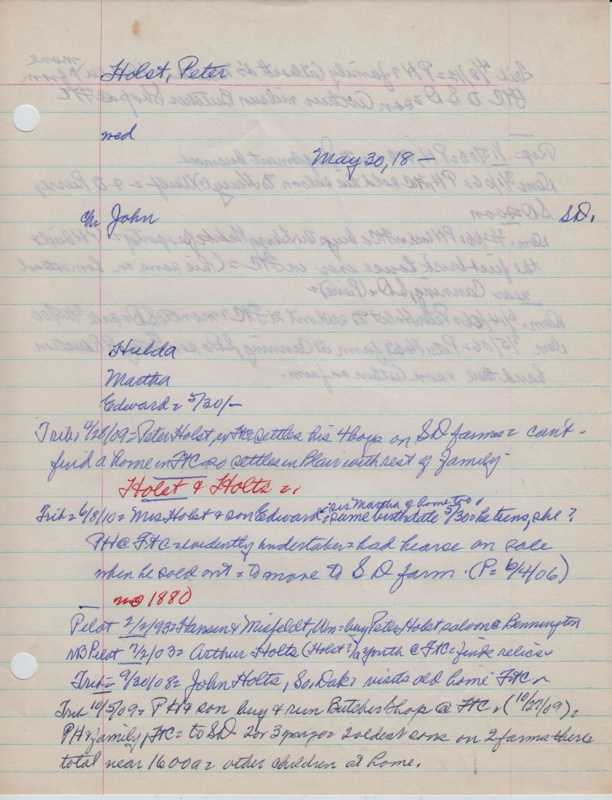 Holst, Peter
wed
May 30, 18 —
ch: John S.D.
Hulda
Martha
Edward = 5/30/-
Trib: 4/20/09 = Peter Holst, FtC settles his 4 boys on S D farms = can't
find a home in FtC so settles in Blair with rest of family
Holst & Holts =
Trib = 6/8/10 = Mrs Holst & son Edward = same birthdate 5/30 = he teens, she ?
sis Martha @ home too
PH @ FtC = evidently undertaker = had hearse on sale
when he sold out = to move to S D farm. (P= 6/4/06)
no 1880
Pilot 2/2/93 = Hansen & Misfeldt, buy Peter Holst saloon @ Bennington
NB Pilot 7/2/03 = Arthur = Holts (Holst?) a youth @ FtC = finds relics
Trib = 9/30/08 = John Holts, So. Dak = visits old home FtC
Trib 10/5/09 = P H & son buy & run Butcher Shop @ FtC. (10/27/09) =
PH & family, FtC = to S.D. 2 or 3 yrs ago = 2 oldest sons on 2 farms there
total near 1600 a = other children at home.